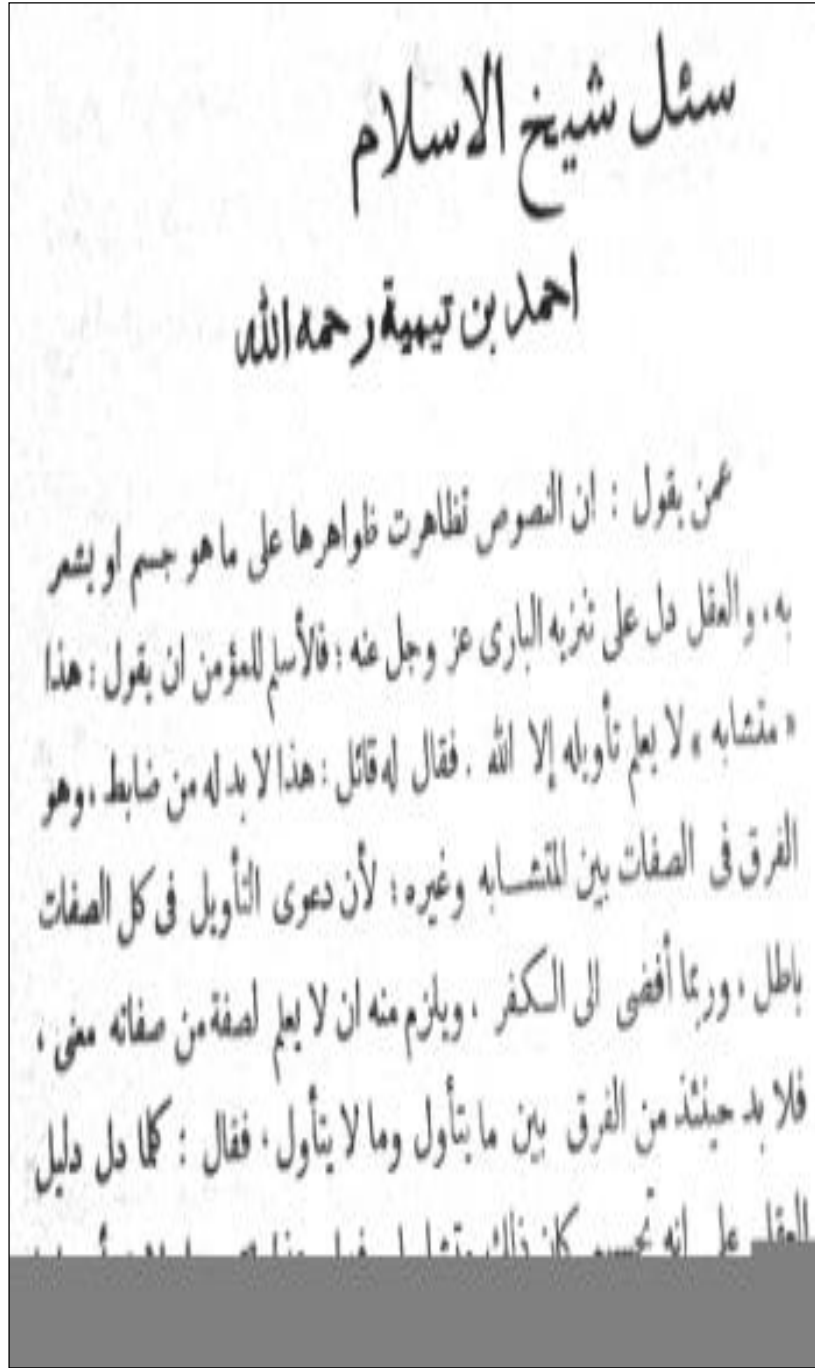 سئل شيخ الاسلام
احمد بن تيمية رحمه الله
عمن يقول : ان النصوص تظاهرت ظواهرها على ما هو جسم او يشعر
به ، والعقل دل على تنزيه البارى عز وجل عنه ؛ فالأسلم للمؤمن ان يقول : هذا
« متشابه » لا يعلم تأويله إلا الله . فقال له قائل : هذا لا بد له من ضابط ، وهو
الفرق فى الصفات بين المتشابه وغيره ؛ لأن دعوى التأويل فى كل الصفات
باطل ، وربما أفضى الى الكفر ، ويلزم منه ان لا يعلم لصفة من صفاته معنى ،
فلا بد حينئذ من الفرق بين ما يتأول وما لا يتأول ، فقال : كلما دل دليل
العقل على انه تجسيم كان ذلك متشابها